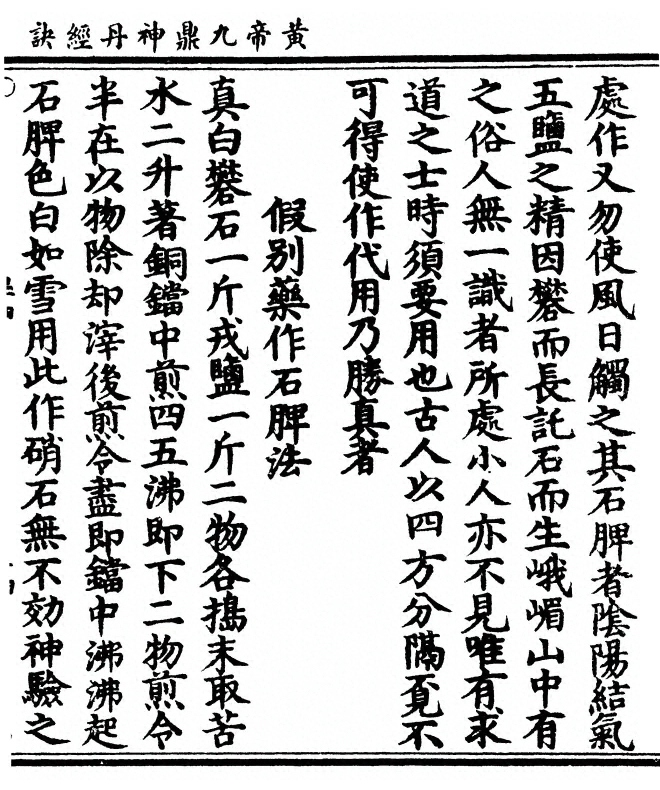 黃帝九鼎神丹經訣
處作又勿使風日觸之其石脾者陰陽結氣
五鹽之精因礬而長託石而生峨嵋山中有
之俗人無一識者所處小人亦不見唯有求
道之士時須要用也古人以四方分隔覓不
可得使作代用乃勝真者
假別藥作石脾法
真白礬石一斤戎鹽一斤二物各搗末取苦
水二升著銅鐺中煎四五沸即下二物煎令
半在以物除却滓後煎令盡即鐺中沸沸起
石脾色白如雪用此作硝石無不効神驗之